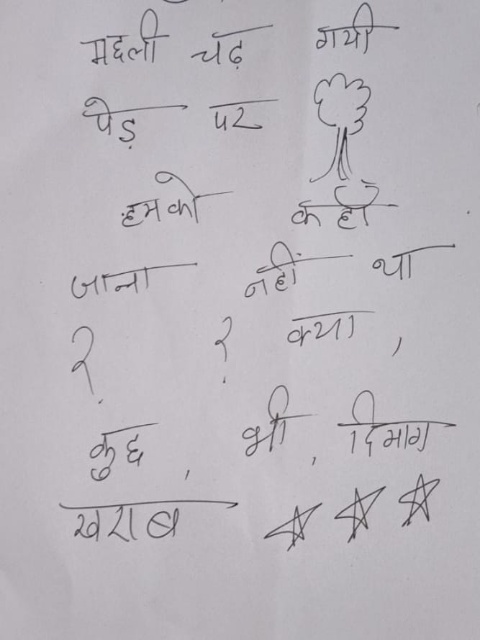 मछली चढ़ गयी
पेड़ पर
हमको कहाँ
जाना नहीं था
? ? क्या,
कुछ, भी, दिमाग
खराब